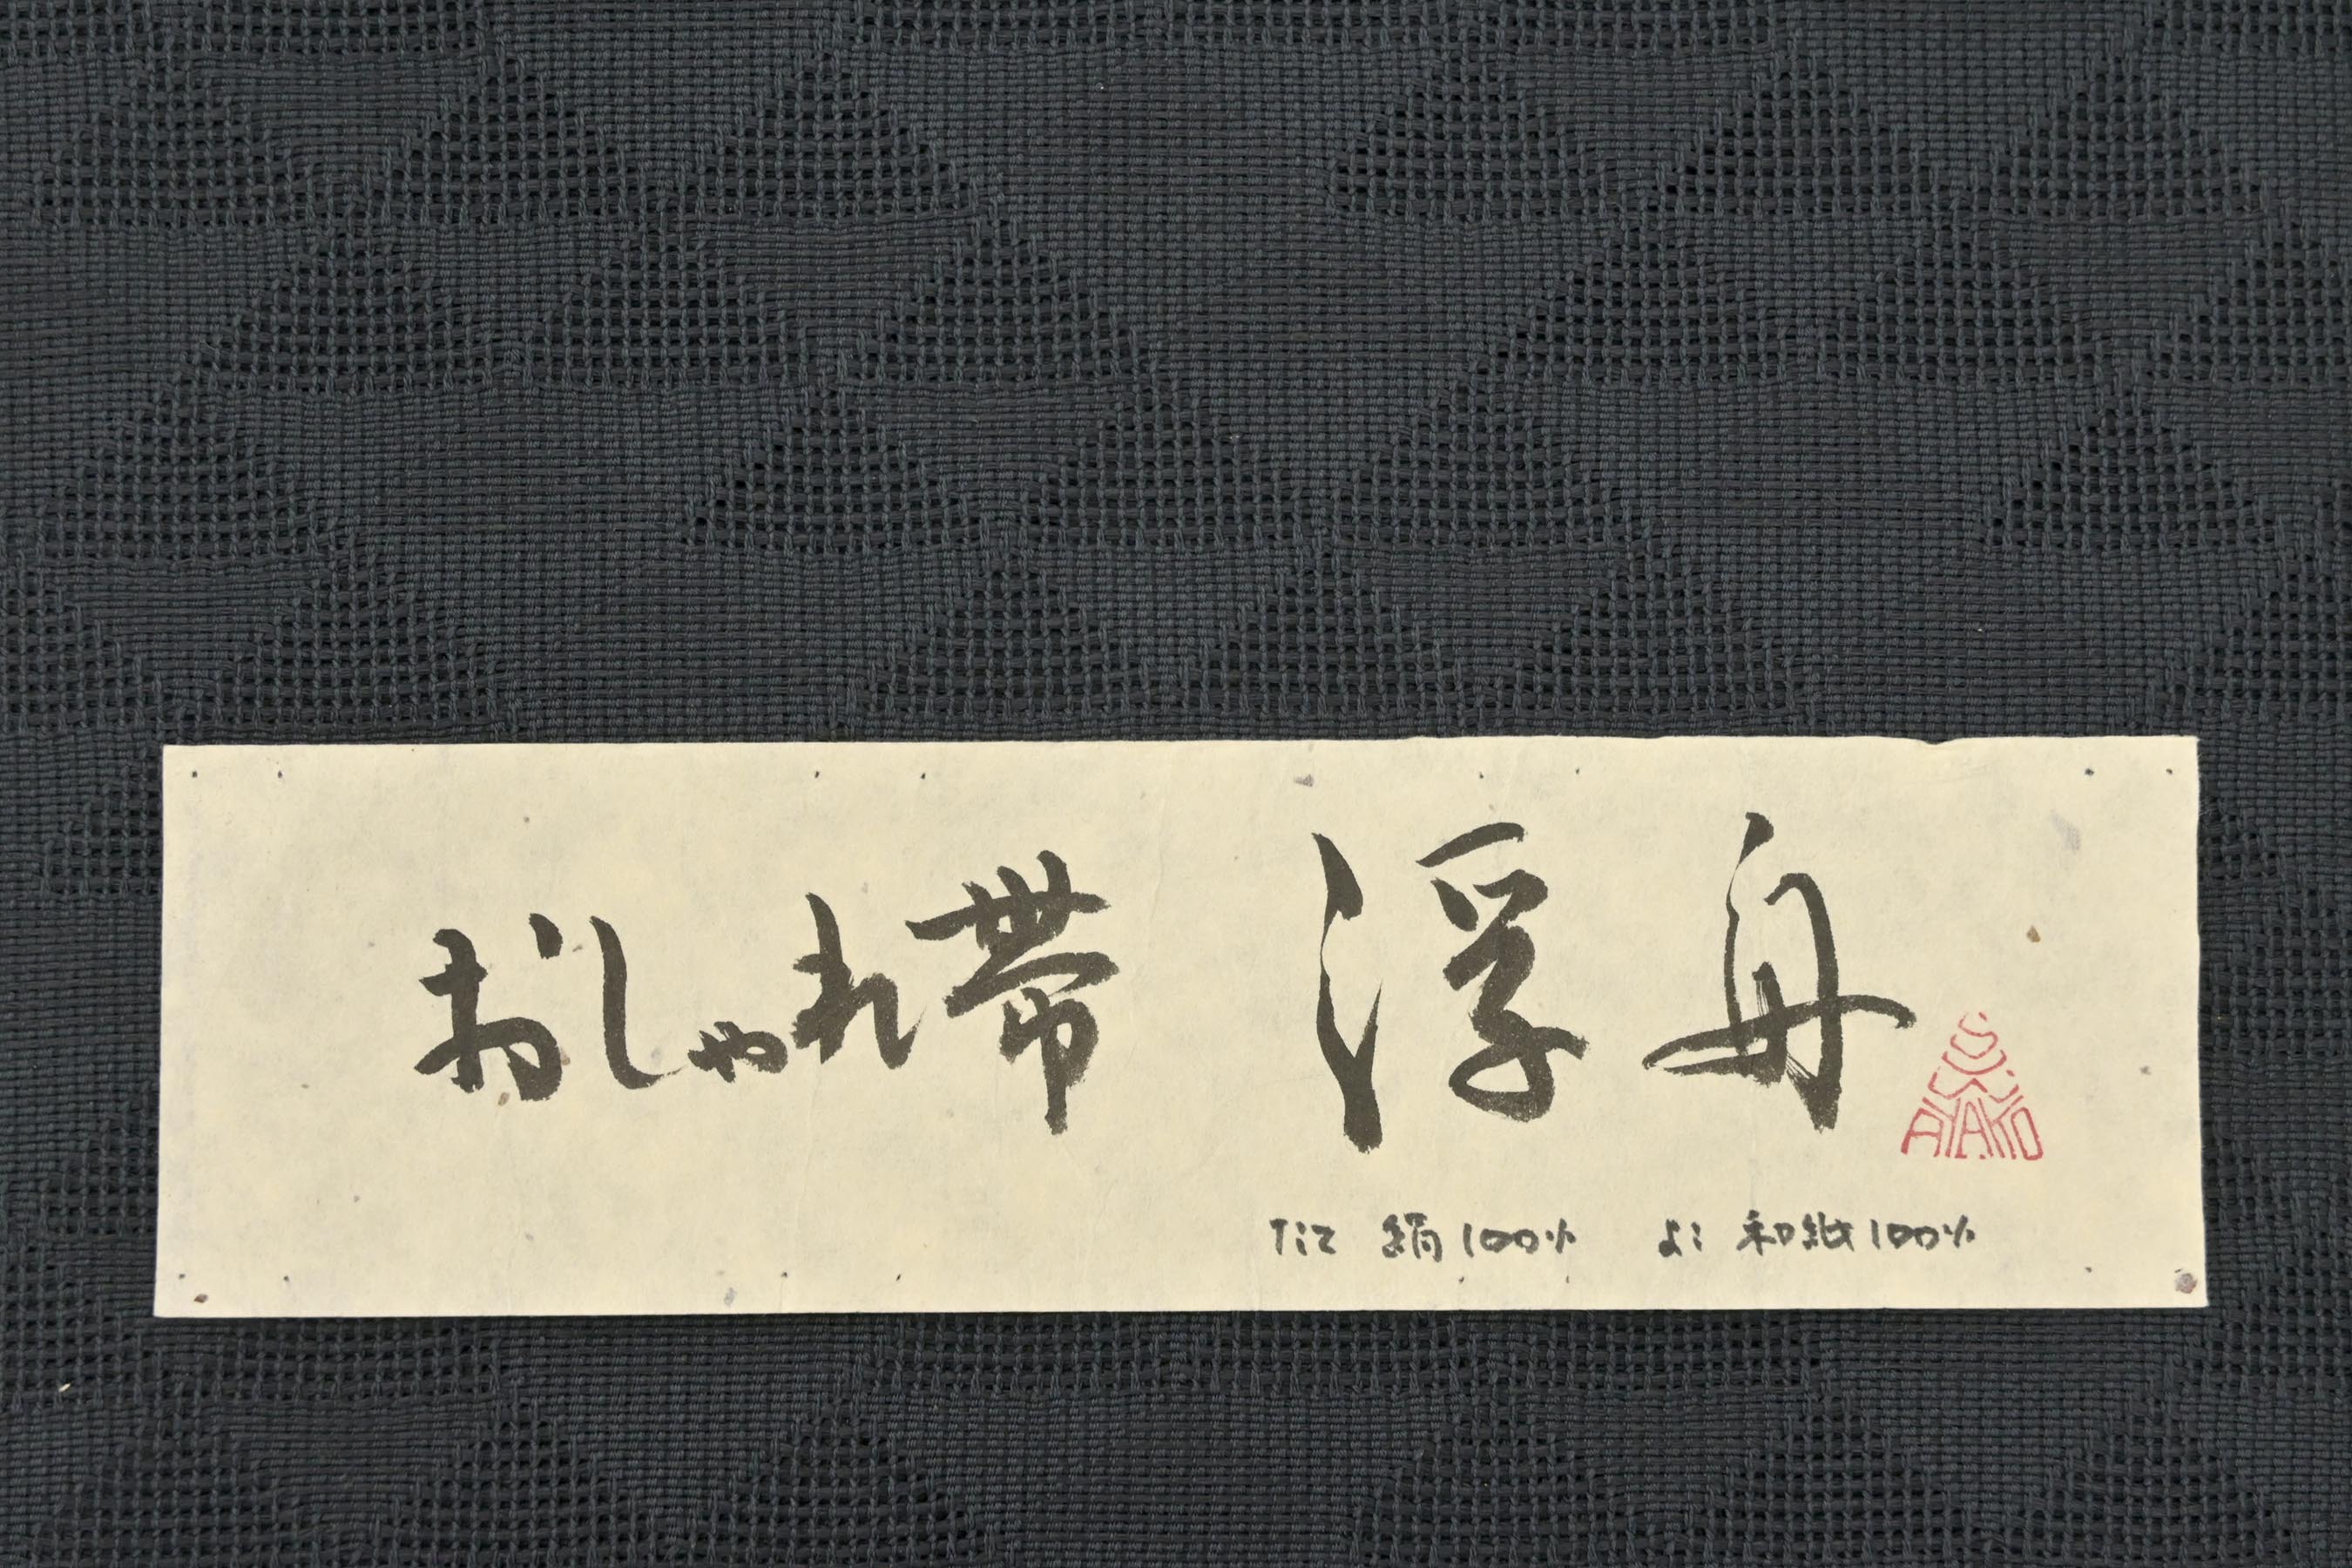 おしゃれ帯 浮舟
AYAKO
たて 絹100% よこ 和紙100%